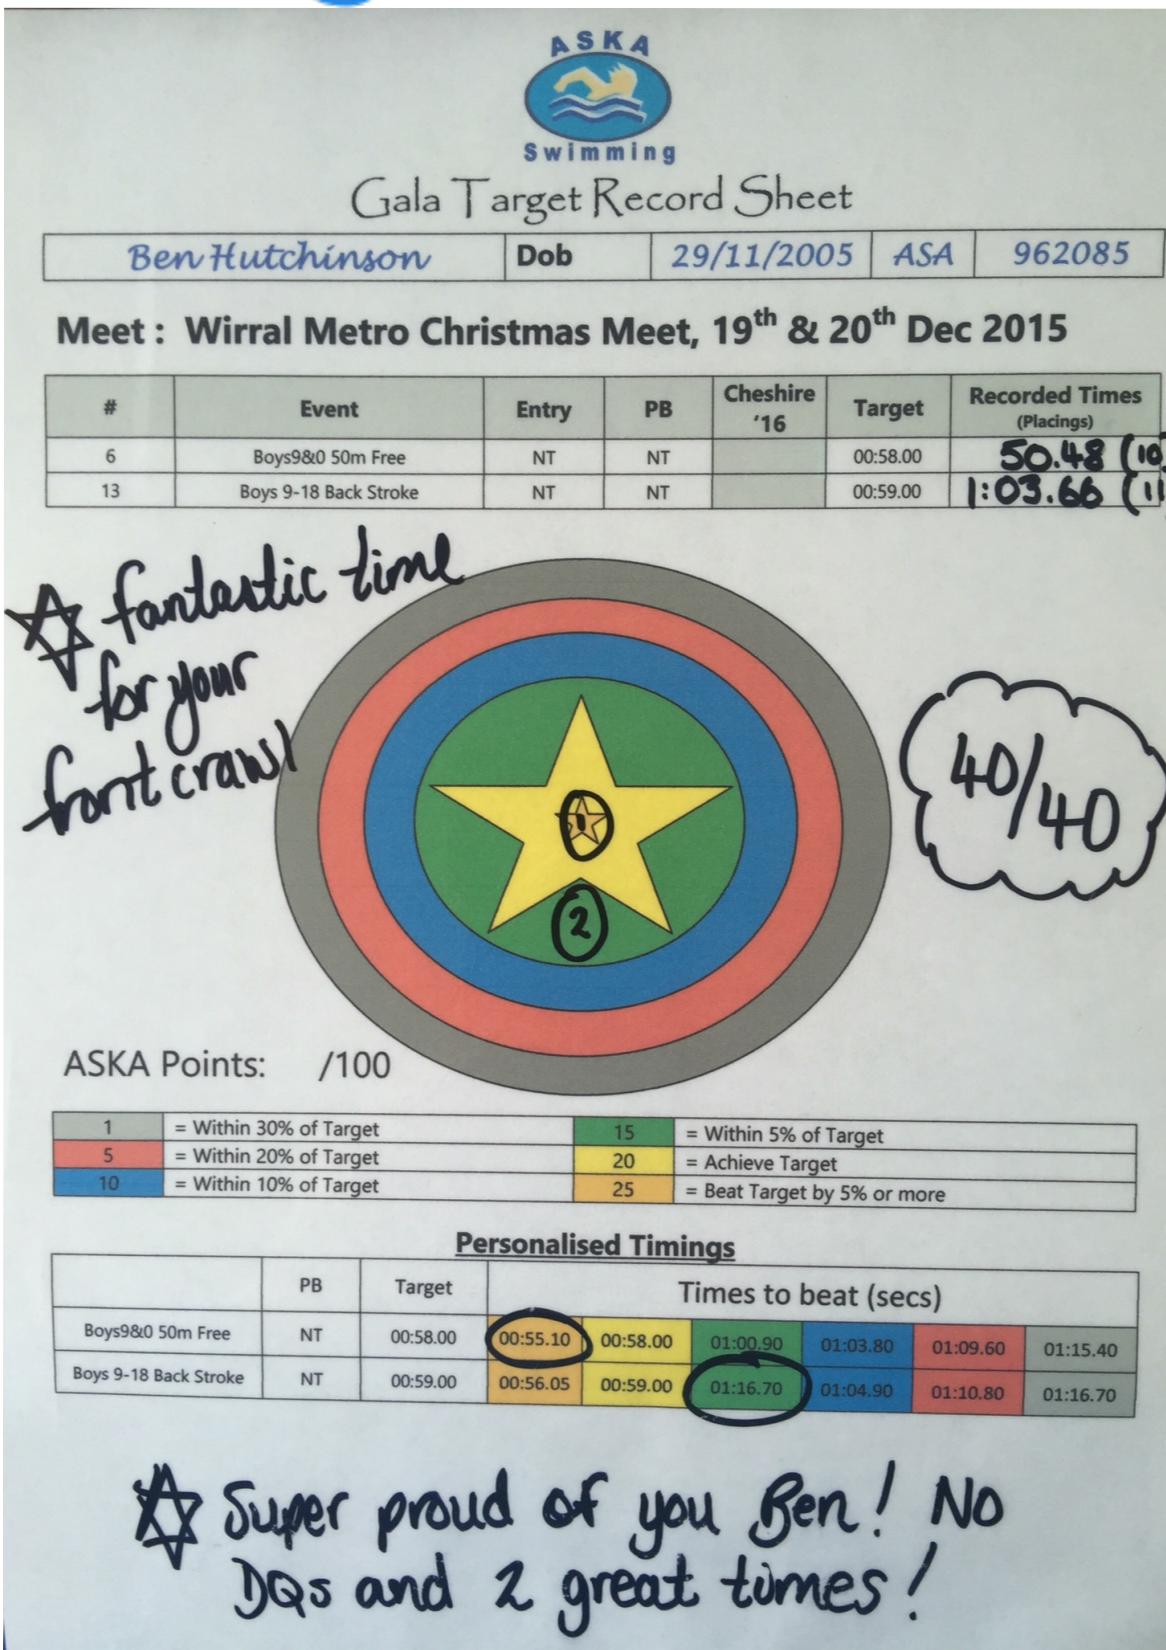 ASKA
Swimming
Gala Target Record Sheet
Ben Hutchinson Dob 29/11/2005 ASA 962085
Meet : Wirral Metro Christmas Meet, 19th & 20th Dec 2015
# Event Entry PB Cheshire '16 Target Recorded Times (Placings)
6 Boys9&0 50m Free NT NT 00:58.00 50.48 (10
13 Boys 9-18 Back Stroke NT NT 00:59.00 1:03.66 (11
fantastic time
for your
front crawl
40/40
1
2
ASKA Points: /100
1 = Within 30% of Target 15 = Within 5% of Target
5 = Within 20% of Target 20 = Achieve Target
10 = Within 10% of Target 25 = Beat Target by 5% or more
Personalised Timings
PB Target Times to beat (secs)
Boys9&0 50m Free NT 00:58.00 00:55.10 00:58.00 01:00.90 01:03.80 01:09.60 01:15.40
Boys 9-18 Back Stroke NT 00:59.00 00:56.05 00:59.00 01:16.70 01:04.90 01:10.80 01:16.70
Super proud of you Ben! No
DQs and 2 great times!